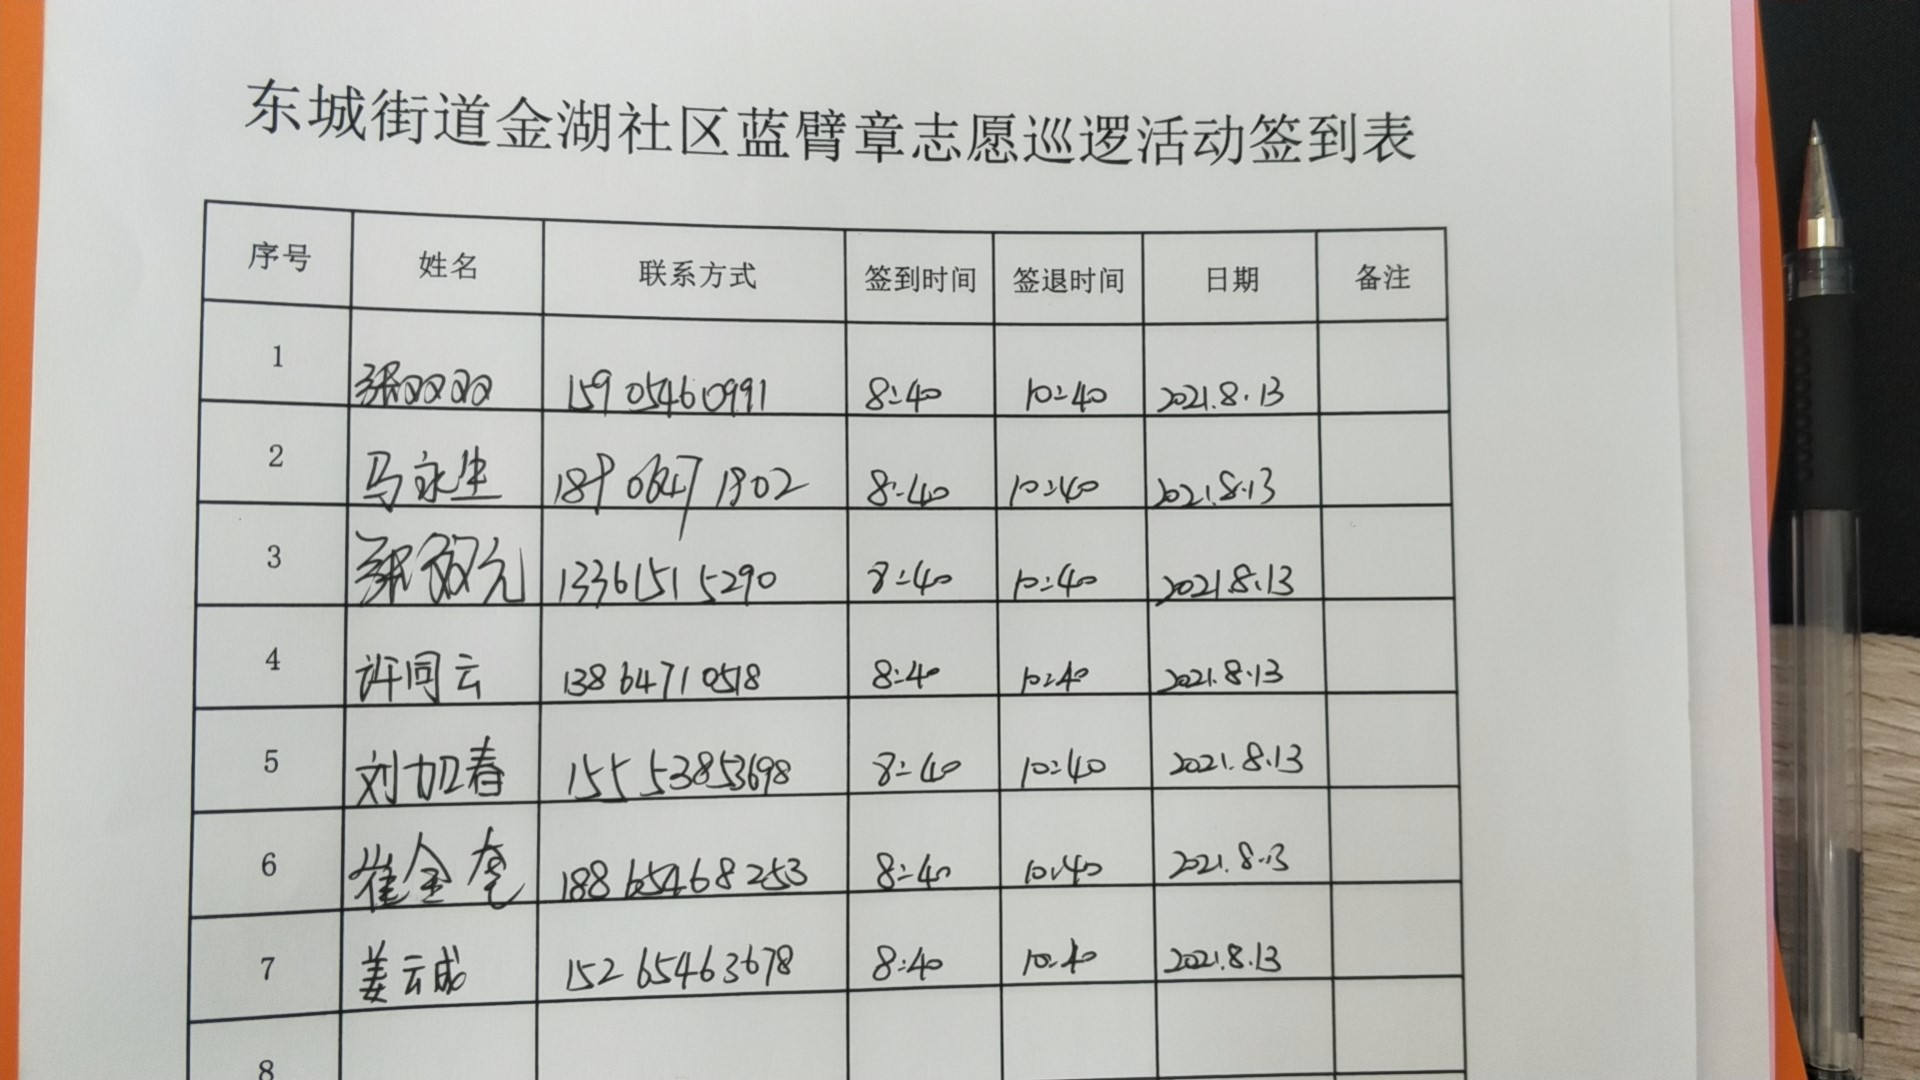 东城街道金湖社区蓝臂章志愿巡逻活动签到表
序号 姓名 联系方式 签到时间 签退时间 日期 备注
1 张双双 15905460991 8:40 10:40 2021.8.13
2 马永生 8:40 10:40 2021.8.13
3 13361515290 8:40 10:40 2021.8.13
4 许同云 13864710518 8:40 10:40 2021.8.13
5 刘加春 15553853698 8:40 10:40 2021.8.13
6 崔金奎 18865468253 8:40 10:40 2021.8.13
7 姜云成 15265463678 8:40 10:40 2021.8.13
8